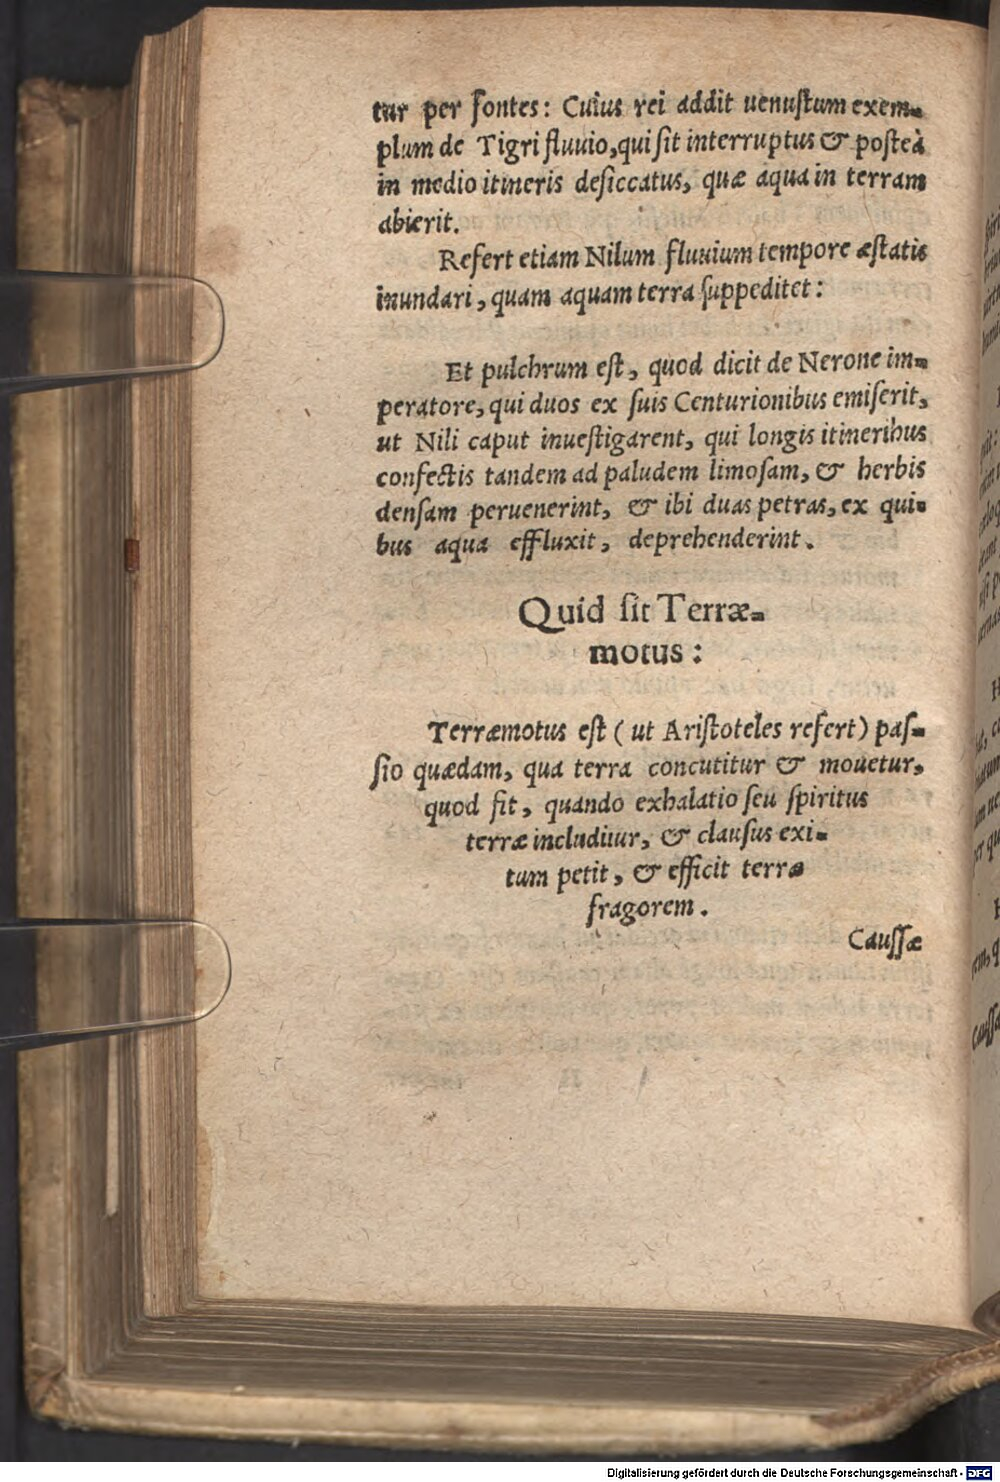 tur per fontes: Cuius rei addit uenuſtum exem-
plum de Tigri fluuio, qui ſit interruptus & poſteà
in medio itineris deſiccatus, quæ aqua in terram
abierit.
Refert etiam Nilum fluuium tempore æſtatis
inundari, quam aquam terra ſuppeditet:
Et pulchrum eſt, quod dicit de Nerone im-
peratore, qui duos ex ſuis Centurionibus emiſerit,
ut Nili caput inueſtigarent, qui longis itineribus
confectis tandem ad paludem limoſam, & herbis
denſam peruenerint, & ibi duas petras, ex qui-
bus aqua effluxit, deprehenderint.
Quid ſit Terræ-
motus:
Terræmotus eſt (ut Ariſtoteles refert) paſ-
ſio quædam, qua terra concutitur & mouetur,
quod fit, quando exhalatio ſeu ſpiritus
terræ includitur, & clauſus exi-
tum petit, & efficit terræ
fragorem.
Cauſſæ
Digitalisierung gefördert durch die Deutsche Forschungsgemeinschaft - DFG